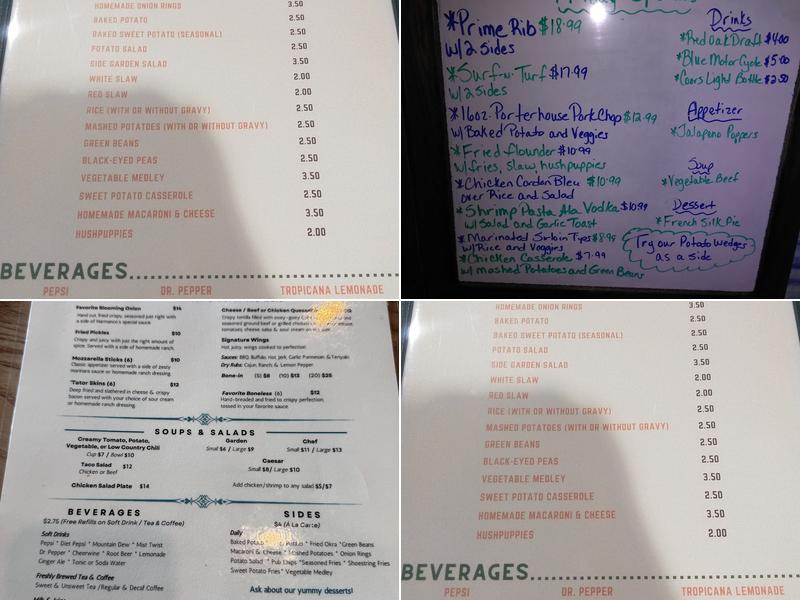 HOMEMADE ONION RINGS 3.50
BAKED POTATO 2.50
BAKED SWEET POTATO (SEASONAL) 2.50
POTATO SALAD 2.50
SIDE GARDEN SALAD 3.50
WHITE SLAW 2.00
RED SLAW 2.00
RICE (WITH OR WITHOUT GRAVY) 2.50
MASHED POTATOES (WITH OR WITHOUT GRAVY) 2.50
GREEN BEANS 2.50
BLACK-EYED PEAS 2.50
VEGETABLE MEDLEY 3.50
SWEET POTATO CASSEROLE 2.50
HOMEMADE MACARONI & CHEESE 3.50
HUSHPUPPIES 2.00
BEVERAGES
PEPSI DR. PEPPER TROPICANA LEMONADE
*Prime Rib $18.99
w/2 sides
*Surf-n-Turf $17.99
w/2 sides
*16oz. Porterhouse Pork Chop $12.99
w/Baked Potato and Veggies
*Fried flounder $10.99
w/fries, slaw, hushpuppies
*Chicken Cordon Bleu $10.99
over Rice and Salad
*Shrimp Pasta Ala Vodka $10.99
w/Salad and Garlic Toast
*Marinated Sirloin Tips $8.99
w/Rice and Veggies
*Chicken Casserole $7.99
w/ mashed Potatoes and Green Beans
Drinks
*Red Oak Draft $4.00
*Blue MotorCycle $5.00
*Coors Light Bottle $2.50
Appetizer
*Jalapeno Poppers
Soup
*Vegetable Beef
Dessert
*French Silk Pie
Try our Potato Wedges
as a side
Favorite Blooming Onion $14
Hand cut, fried crispy, seasoned just right with
a side of Harmon's special sauce
Fried Pickles $10
Crispy and juicy with just the right amount of
spice. Served with a side of homemade ranch.
Mozzarella Sticks (6) $10
Classic appetizer served with a side of zesty
marinara sauce or homemade ranch dressing.
'Tator Skins (6) $12
Deep fried and slathered in cheese & crispy
bacon served with your choice of sour cream
or homemade ranch dressing.
Cheese / Beef or Chicken
Crispy tortilla filled with
seasoned ground beef or grilled
tomatoes, cheese, salsa & sour cream
Signature Wings
Hot juicy, wings cooked to perfection
Sauces: BBQ, Buffalo, Hot, Jerk, Garlic Parmesan, & Teriyaki
Dry Rubs: Cajun, Ranch, & Lemon Pepper
Bone-in (5) $8 (10) $13 (20) $25
Favorite Boneless (6) $12
Hand-breaded and fried to crispy perfection,
tossed in your favorite sauce
SOUPS & SALADS
Creamy Tomato, Potato,
Vegetable, or Low Country Chili
Cup $7 / Bowl $10
Taco Salad $12
Chicken or Beef
Chicken Salad Plate $14
Garden
Small $6 / Large $9
Chef
Small $11 / Large $13
Caesar
Small $8/ Large $10
Add chicken/shrimp to any salad $5/$7
BEVERAGES
$2.75 (Free Refills on Soft Drink / Tea & Coffee)
Soft Drinks
Pepsi * Diet Pepsi * Mountain Dew * Mist Twist
Dr. Pepper * Cheerwine * Root Beer * Lemonade
Ginger Ale * Tonic or Soda Water
Freshly Brewed Tea & Coffee
Sweet & Unsweet Tea /Regular & Decaf Coffee
SIDES
$4 (Á La Carte)
Daily
Baked Potato * Potato * Fried Okra *Green Beans
Macaroni & Cheese * Mashed Potatoes * Onion Rings
Potato Salad * Pub Chips *Seasoned Fries * Shoestring Fries
Sweet Potato Fries* Vegetable Medley
Ask about our yummy desserts!
HOMEMADE ONION RINGS 3.50
BAKED POTATO 2.50
BAKED SWEET POTATO (SEASONAL) 2.50
POTATO SALAD 2.50
SIDE GARDEN SALAD 3.50
WHITE SLAW 2.00
RED SLAW 2.00
RICE (WITH OR WITHOUT GRAVY) 2.50
MASHED POTATOES (WITH OR WITHOUT GRAVY) 2.50
GREEN BEANS 2.50
BLACK-EYED PEAS 2.50
VEGETABLE MEDLEY 3.50
SWEET POTATO CASSEROLE 2.50
HOMEMADE MACARONI & CHEESE 3.50
HUSHPUPPIES 2.00
BEVERAGES
PEPSI DR. PEPPER TROPICANA LEMONADE